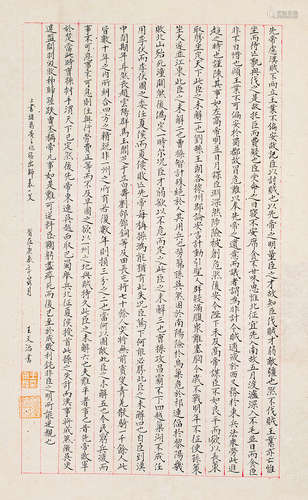 先帝慮漢賊不兩立王業不偏安故託臣以討賊也以先帝之明量臣之才故知臣伐賊才弱敵強也然不伐賊王業亦亡惟
坐而待亡孰與伐之是故託臣而弗疑也臣受命之日寢不安席食不甘味思惟北征宜先入南故五月渡瀘深入不毛并日而食臣
非不自惜也顧王業不可偏安於蜀都故冒危難以奉先帝之遺意而議者謂為非計今賊適疲於西又務於東兵法乘勞此進
趨之時也謹陳其事如左高帝明並日月謀臣淵深然涉險被創危然後安今陛下未及高帝謀臣不如良平而欲以長策
取勝坐定天下此臣之未解一也劉繇王朗各據州郡論安言計動引聖人群疑滿腹眾難塞胸今歲不戰明年不征使孫策
坐大遂并江東此臣之未解二也曹操智計殊絕於人其用兵也髣髴孫吳然困於南陽險於烏巢危於祁連偪於黎陽幾
敗北山殆死潼關然後偽定一時爾況臣才弱而欲以不危而定之此臣之未解三也曹操五攻昌霸不下四越巢湖不成任
用李服而李服圖之委任夏侯而夏侯敗亡先帝每稱操為能猶有此失況臣駑下何能必勝此臣之未解四也自臣到漢
中間期年耳然喪趙雲陽群馬玉閻芝丁立白壽劉郃鄧銅等及曲長屯將七十餘人突將無前賨叟青羌散騎武騎一千餘人此
皆數十年之內所糾合四方之精銳非一州之所有若復數年則損三分之二也當何以圖敵此臣之未解五也今民窮兵疲而
事不可息事不可息則住與行勞費正等而不及早圖之欲以一州之地與賊持久此臣之未解六也夫難平者事也昔先帝敗軍
於楚當此時曹操拊手謂天下已定然後先帝東連吳越西取巴蜀舉兵北征夏侯授首此操之失計而漢事將成也然後吳更
違盟關羽毀敗秭歸蹉跌曹丕稱帝凡事如是難可逆料臣鞠躬盡瘁死而後已至於成敗利鈍非臣之明所能逆覩也
上書諸葛孔明後出師表一文